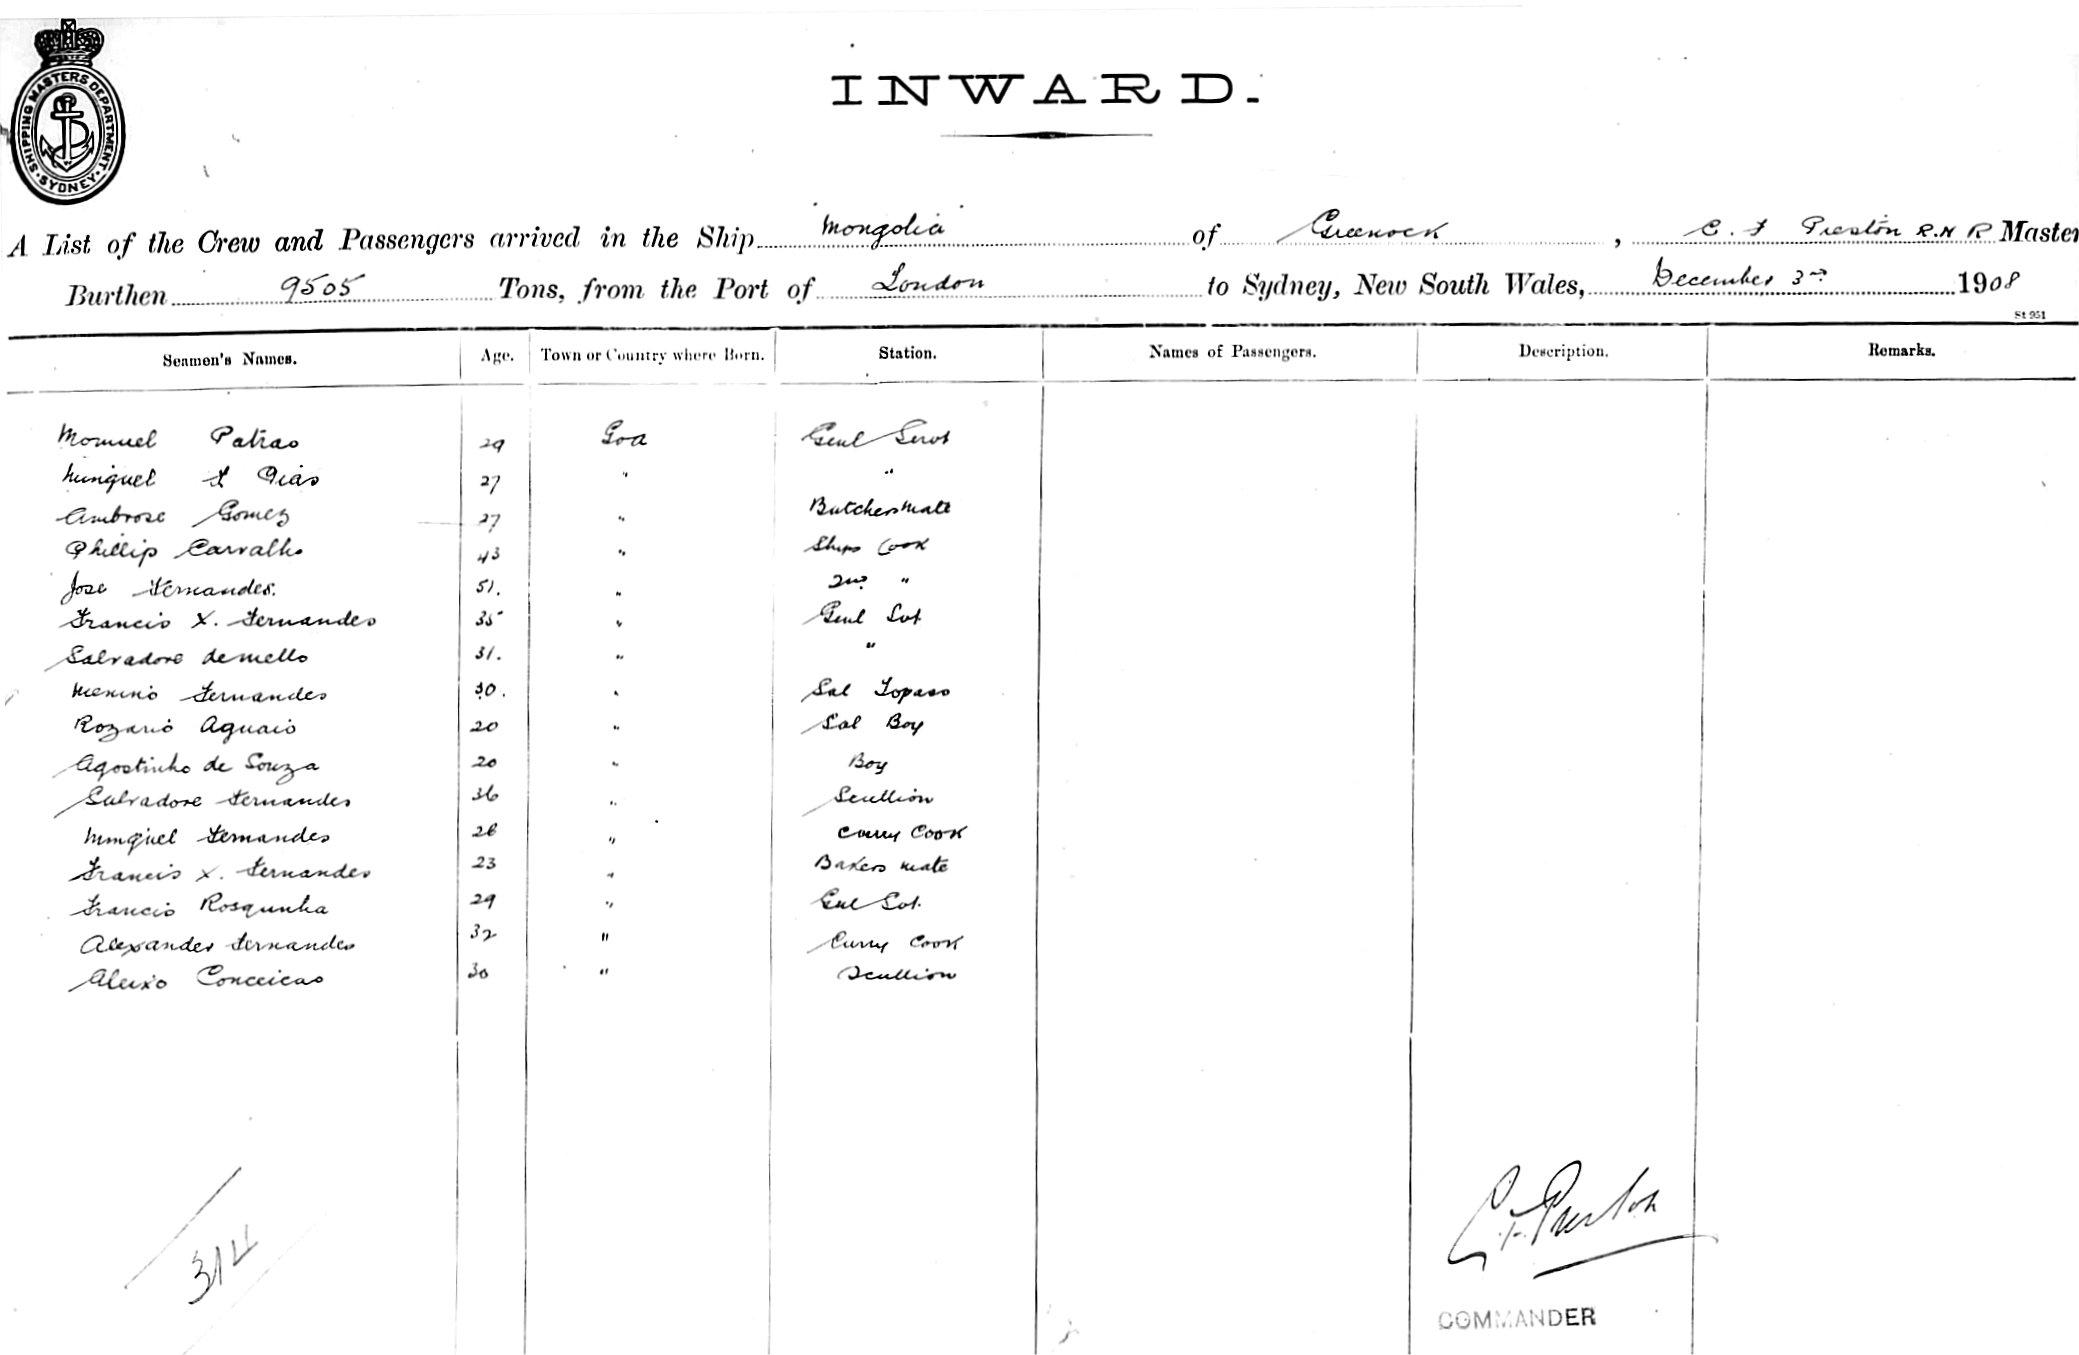 SHIPPING MASTERS DEPARTMENT. SYDNEY.
INWARD.
A List of the Crew and Passengers arrived in the Ship Mongolia of Greenock, C. F Preston R.N R Master
Burthen 9505 Tons, from the Port of London to Sydney, New South Wales, December 3rd 1908
St 951
Seamen's Names. Age. Town or Country where Born. Station. Names of Passengers. Description. Remarks.
Momuel Patrao 29 Goa Genl Servt
Minguel F Dias 27 " "
Ambrose Gomez 27 " Butchers mate
Phillip Carvalho 43 " Ships Cook
Jose Fernandes. 51. " 2nd "
Francis X. Fernandes 35 " Genl Svt
Salvadore demello 31. " "
Menino Fernandes 30. " Sal Topass
Rozario Aguaio 20 " Sal Boy
Agostinho de Souza 20 " Boy
Salvadore Fernandes 36 " Scullion
Minguel Fernandes 28 " Curry Cook
Francis X. Fernandes 23 " Bakers mate
Francis Rosqunha 29 " Gnl Svt.
Alexander Fernandes 32 " Curry Cook
Aleixo Conceicao 30 " Scullion
314
C. F. Preston
COMMANDER